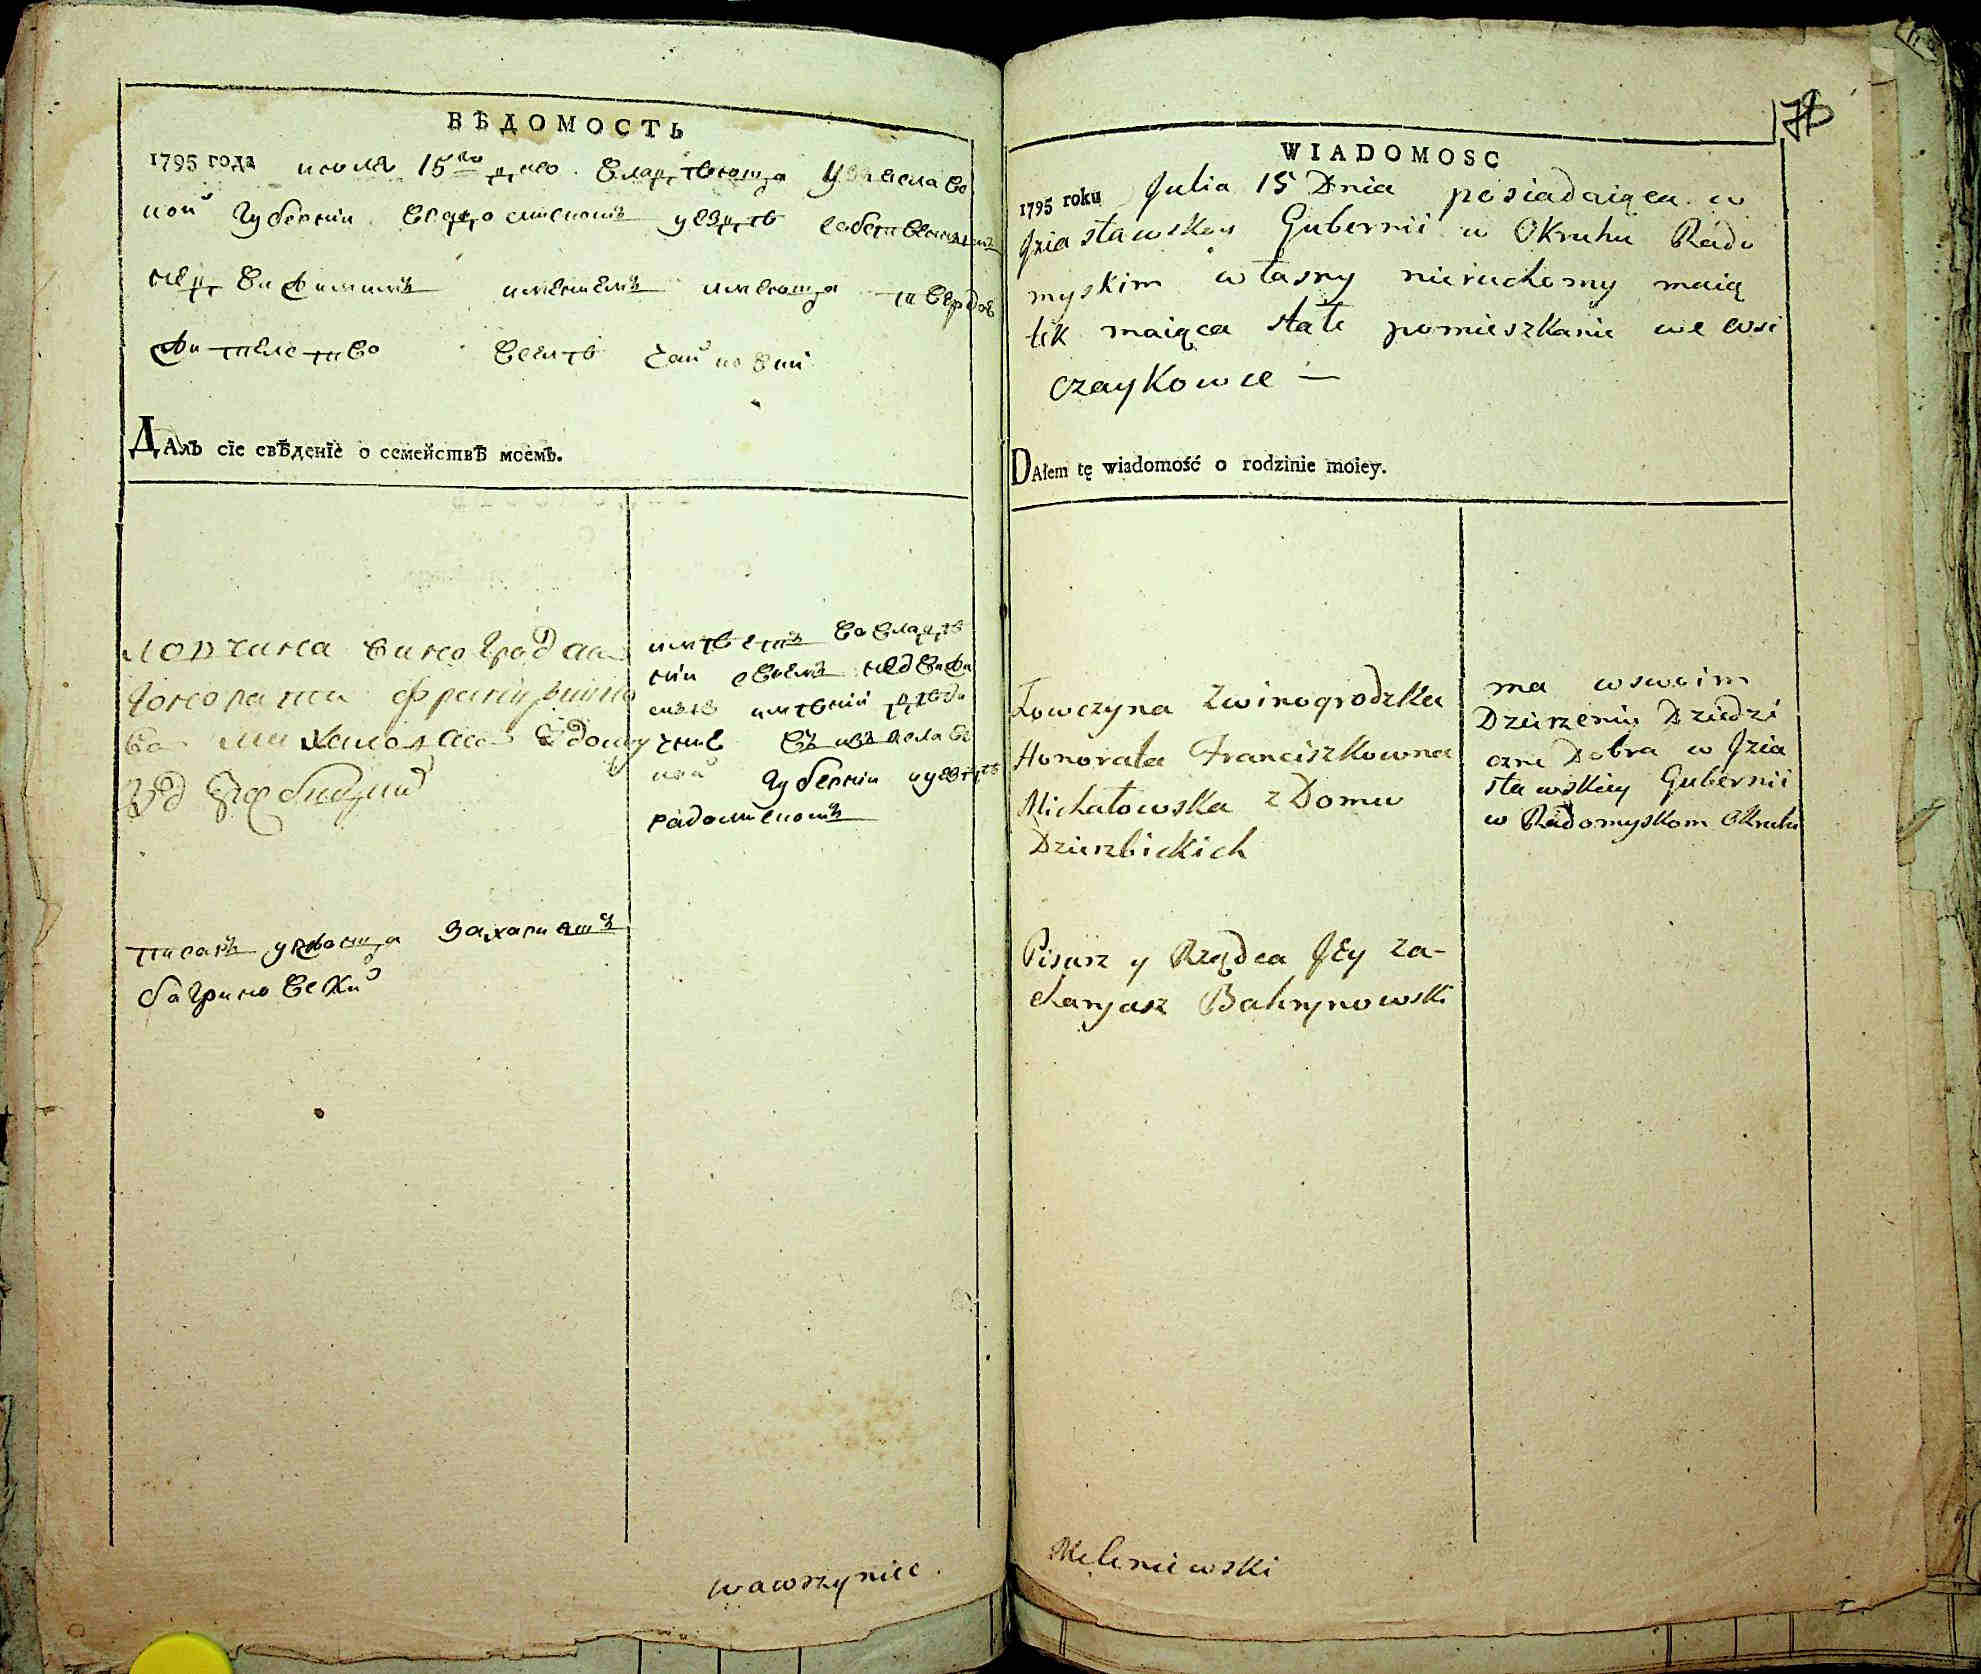 ВѢДОМОСТЬ
1795 года июля 15го дня владѣюща Узяславс
кой Губерніи врадомискомъ уездѣ собственнымъ
недвижимимъ имениемъ имеюща
жителство вселѣ Чайковки
Далъ сіе свѣденіе о семействѣ моемъ.
ловчина виноградска
Гонората францишко
ва михаловска здому
имѣетъ вовладѣ
ніи своемъ недвижи
имѣніи
въ изяславс
кой Губерніи уездѣ
радомискомъ
писаръ Захариашъ
багриновский
wawrzyniec
178
WIADOMOSC
1795 roku Julia 15 Dnia posiadaiąca w
Iziasławskey Gubernii w Okruhu Rado
myskim własny nieruchomy maią
tek maiąca stałe pomieszkanie we wsi
Czaykowce —
DAłem tę wiadomość o rodzinie moiey.
Łowczyna Zwinogrodzka
Honorata Franciszkowna
Michałowska z Domu
Dzierzbickich
ma wswoim
Dzierżeniu Dziedzi
czne Dobra w Izia
sławskiey Gubernii
w Radomyskom Okruhu
Pisarz y Rządca Jey Za-
charyasz Bahrynowski
Meleniewski